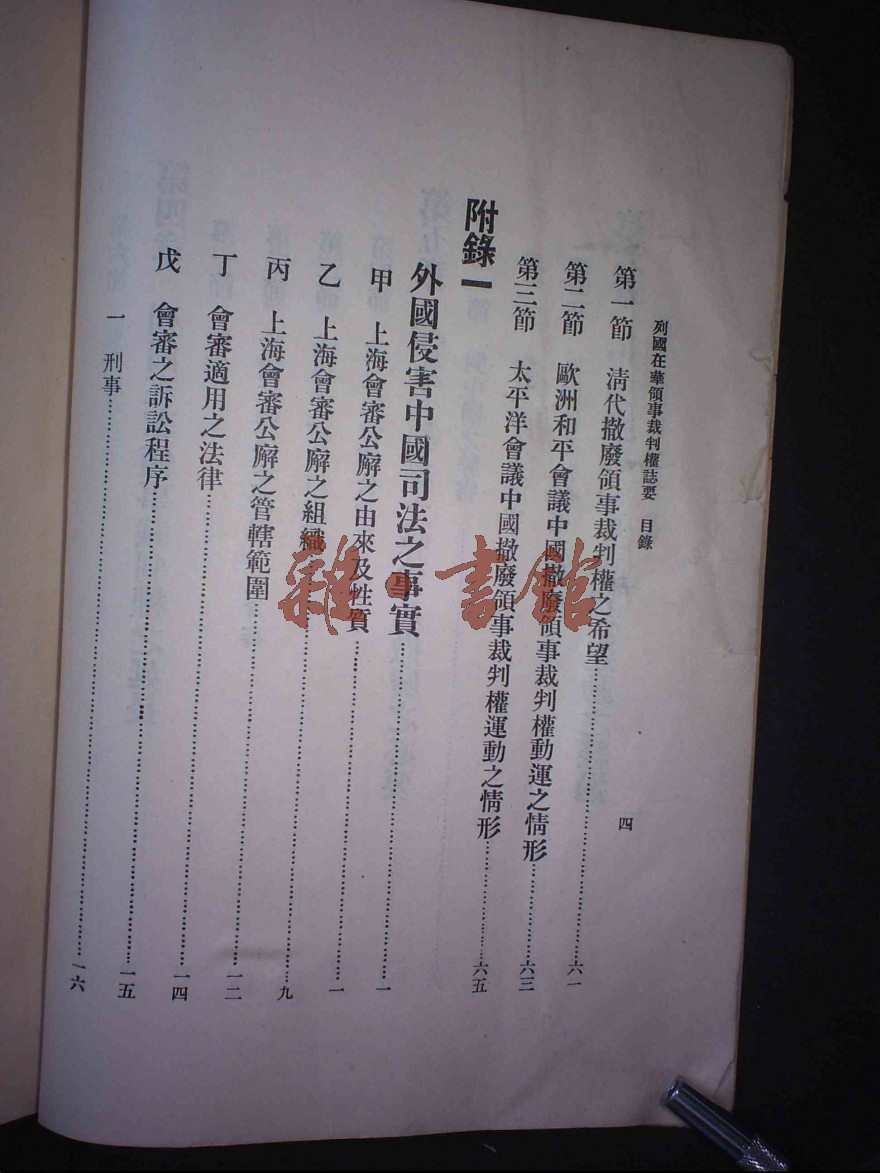 列國在華領事裁判權誌要 目錄 四
第一節 清代撤廢領事裁判權之希望……六一
第二節 歐洲和平會議中國撤廢領事裁判權動運之情形……六三
第三節 太平洋會議中國撤廢領事裁判權運動之情形……六五
附錄一
外國侵害中國司法之事實……一
甲 上海會審公廨之由來及性質……一
乙 上海會審公廨之組織……九
丙 上海會審公廨之管轄範圍……一二
丁 會審適用之法律……一四
戊 會審之訴訟程序……一五
一 刑事……一六
雜·書館